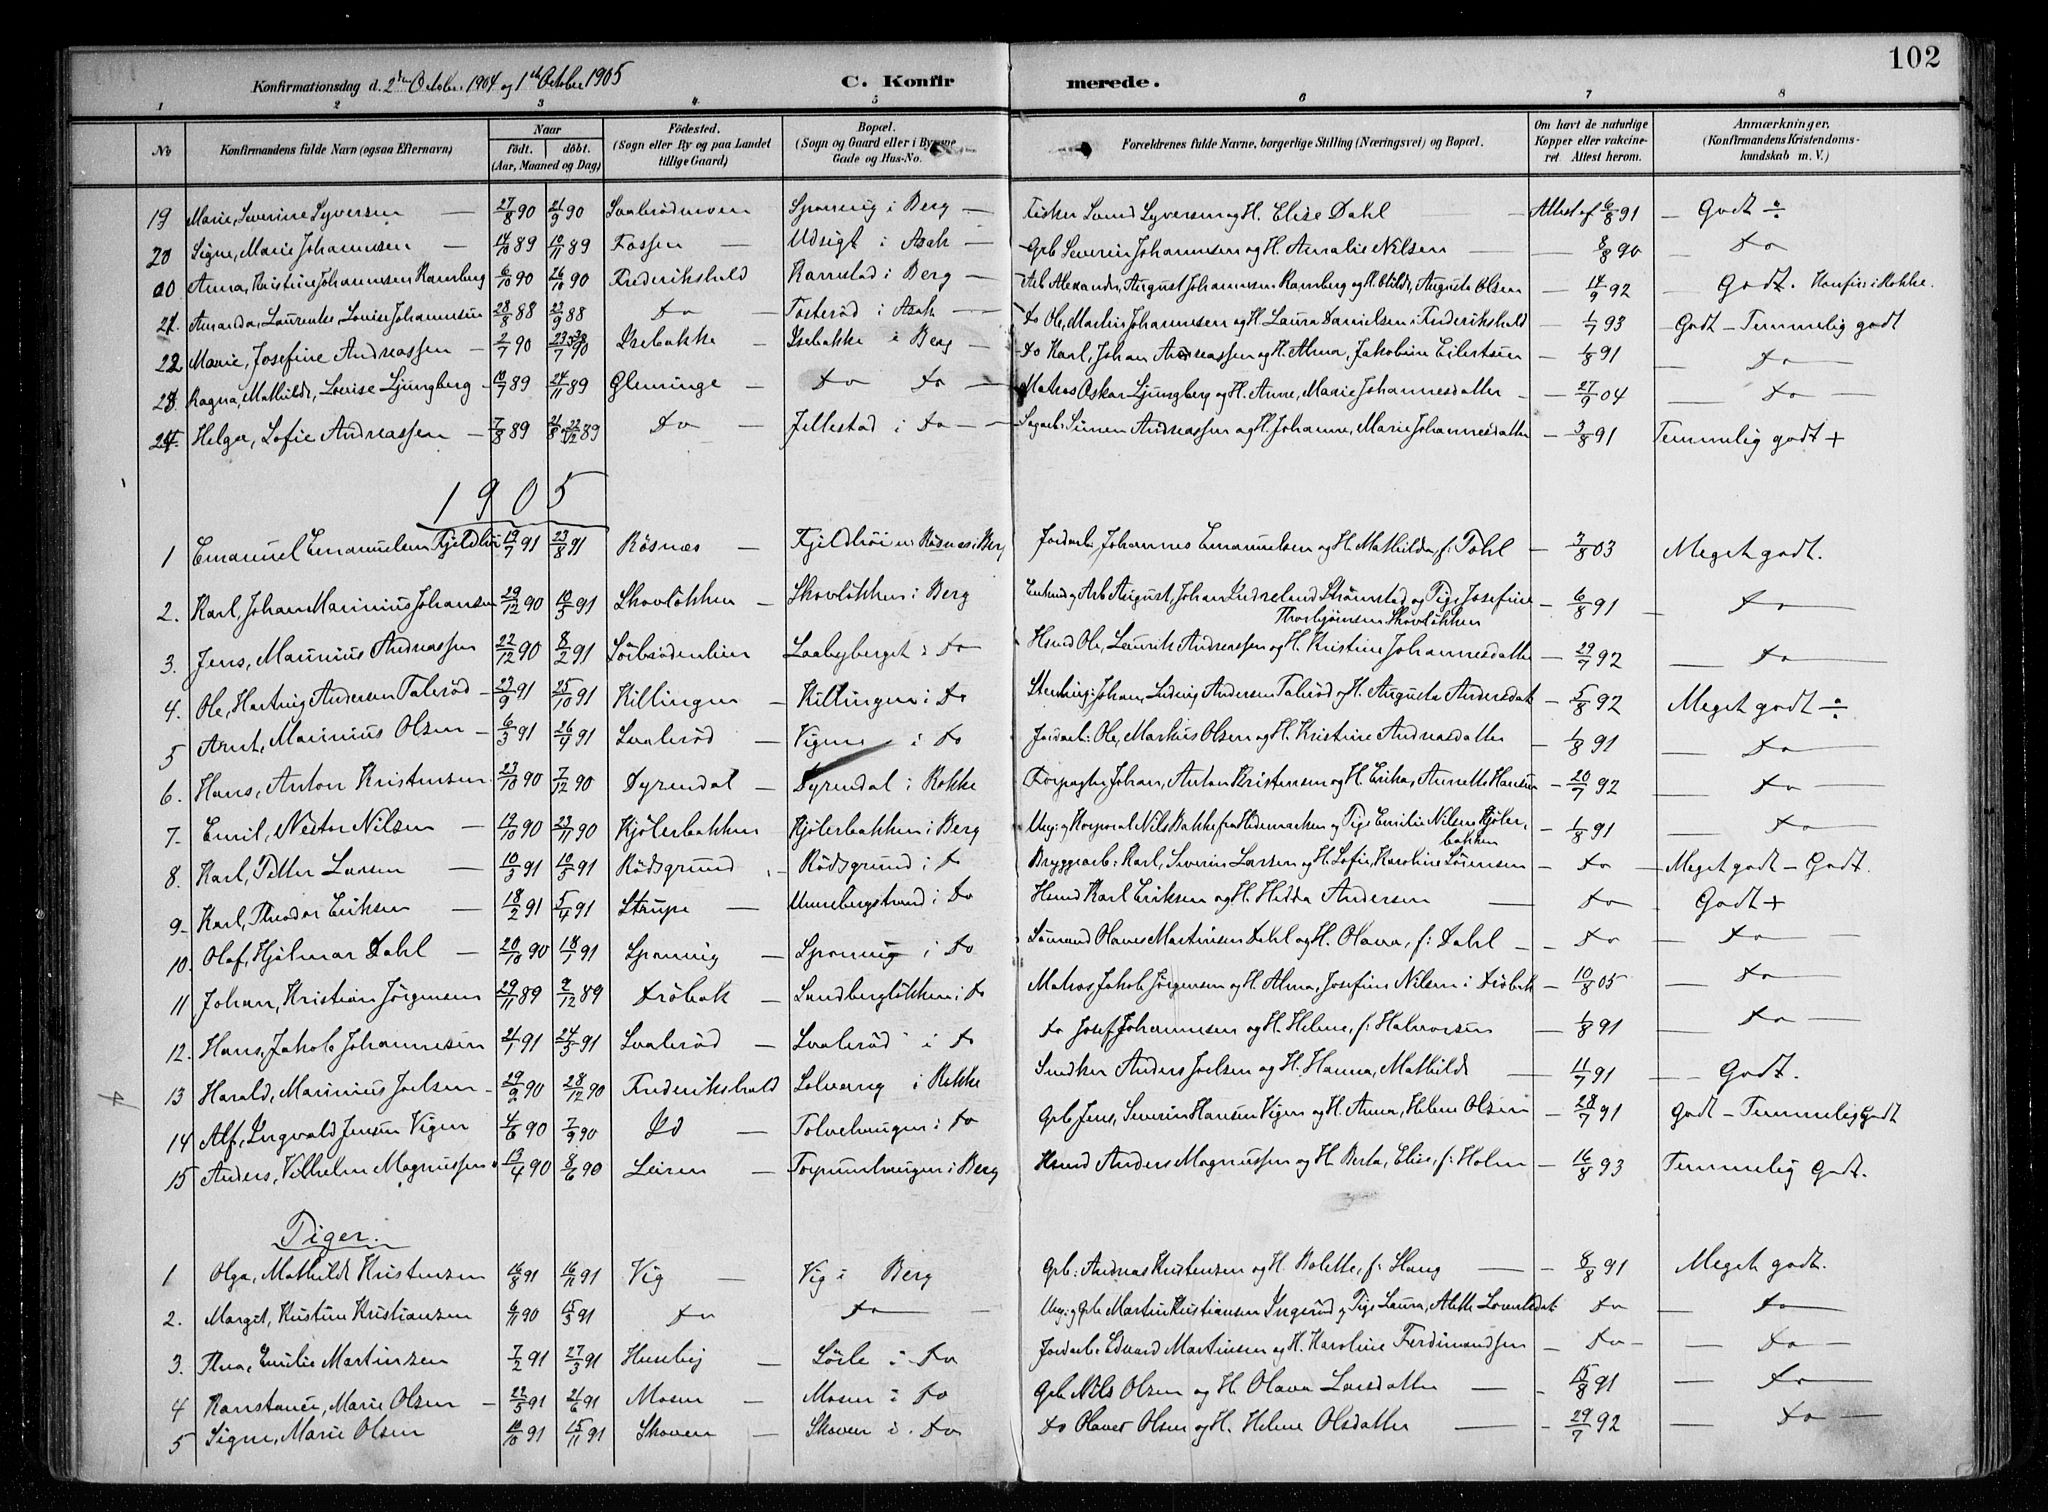 102
Konfirmationsdag d. 2den October 1904 og 1ste October 1905
C. Konfirmerede.
1 2 3 4 5 6 7 8
No
Konfirmandens fulde Navn (ogsaa Efternavn)
Naar
födt. döbt.
(Aar, Maaned og Dag)
Födested.
(Sogn eller By og paa Landet tillige Gaard)
Bopæl.
(Sogn og Gaard eller i Byerne Gade og Hus-No.
Forældrenes fulde Navne, borgerlige Stilling (Næringsvei) og Bopæl.
Om havt de naturlige Kopper eller vakcineret Attest herom.
Anmærkninger, (Konfirmandens Kristendomskundskab m. V.)
19 Marie, Severine Syversen — 27/8 90 21/9 90 Svalerödmoen Sponvig i Berg — Fisker Lund Syversen og H. Elise Dahl Attest af 6/8 91 — Godt ÷
20 Signe, Marie Johannesen — 14/10 89 10/11 89 Fossen — Udsigt i Asak — Grb Severin Johannesen og H. Amalie Nilsen — 8/8 90 — Do
20 Anna, Kristine Johannesen Ramberg 6/10 90 26/10 90 Frederikshald Ramstad i Berg — Arb Alexander, August Johannesen Ramberg og H. Hilda, Augusta Olsen — 14/9 92 — Godt. Konfir. i Rokke.
21. Amanda, Laurentse, Lovise Johannesen 28/8 88 23/9 88 Do — Torteröd i Asak — Do Ole, Martin Johannesen og H. Laura Danielsen i Frederikshald — 1/7 93 — Godt - Temmelig godt
22 Marie, Josefine Andreassen 2/7 90 Isebakke — Isebakke i Berg — Do Karl, Johan Andreassen og H. Alma, Jakobine Eilertsen — 1/8 91 — Do —
23. Ragna, Mathilde, Lovise Ljungberg — 10/7 89 24/11 89 Glemminge — Do Do — Matros Oskar Ljungberg og H. Anne, Marie Johannesdatter — 27/9 04 — Do —
24. Helga, Sofie Andreassen — 7/8 89 Do — Jellestad i Do — Simen Andreassen og H. Johanne, Marie Johannesdatter — 3/8 91 Temmelig godt +
1905
1 Emanuel Emanuelsen Fjeldhöi 19/7 91 23/8 91 Rösnæs — Fjeldhöi u. Rösnes i Berg Jordarb. Johannes Emanuelsen og H. Mathilda, f: Dahl — 3/8 03 Meget godt.
2. Karl, Johan Marinius Johansen 29/12 90 10/3 91 Skovlökken — Skovlökken i Berg Enkem og Arb August, Johan Strömstad og Pige Josefine Thorbjörnsen Skovlökken — 6/8 91 — Do —
3. Jens, Marinius Andreassen 22/12 90 8/2 91 Sörbrödenlien Laabyberget i Do Hsmd Ole, Laurits Andreassen og H. Kristine Johannesdatter — 29/7 92 — Do —
4. Ole, Hartvig Andersen Taleröd — 23/9 91 25/10 91 Killingen — Killingen i Do Stenhug: Johan, Ludvig Andersen Taleröd og H. Augusta Andersdat — 5/8 92 Meget godt ÷
5 Arnt, Marinius Olsen — 6/3 91 26/4 91 Svaleröd — Vigene i Do Jordarb: Ole, Markus Olsen og H. Kristine Andreasdatter — 1/8 91 — Do —
6. Hans, Anton Kristensen 23/10 90 7/12 90 Dyrendal — Dyrendal i Rokke Forpagter Johan, Anton Kristensen og H. Erika, Annette Hansen — 20/7 92 — Do —
7. Emil, Nestor Nilsen — 19/10 90 23/11 90 Kjölerbakken Kjölerbakken i Berg Ung: og Korporal Nils Bakke fra Hedemarken og Pige Emilie Nilsen Kjölerbakken — 1/8 91 — Do —
8. Karl, Petter Larsen — 10/3 91 10/5 91 Rödsgrund — Rödsgrund i Do Bryggearb: Karl, Severin Larsen og H. Sofie, Karoline Sörensen — Do — Meget godt - Godt.
9. Karl, Theodor Eriksen — 18/2 91 5/4 91 Strupe — Unnebergstrand i Do Hsmd Karl Eriksen og H. Hedda Andersen — Do — Godt +
10. Olaf, Hjalmar Dahl — 20/10 90 18/1 91 Sponvig — Sponvig i Do Sömand Olaves Martinsen Dahl og H. Olava, f: Dahl — Do — Do —
11 Johan, Kristian Jörgensen 29/11 89 2/12 89 Dröbak — Sandberglökken i Do Matros Jakob Jörgensen og H. Alma, Josefine Nilsen i Dröbak — 10/8 05 — Do —
12. Hans, Jakob Johannesen 21/1 91 24/5 91 Svaleröd — Svaleröd i Do Do Josef Johannesen og H. Helene, f: Halvorsen — 1/8 91 — Do —
13 Harald, Marinius Joelsen — 29/9 90 28/12 90 Frederikshald Solvang i Rokke Snedker Anders Joelsen og H. Hanna, Mathilde — 11/7 91 — Godt.
14 Alf, Ingvald Jensen Vigen 4/6 90 7/9 90 Id — Tolvehaugen i Do Grb Jens, Severin Hansen Vigen og H. Anna, Helene Olsen — 28/7 91 Godt - Temmelig Godt
15 Anders, Vilhelm Magnussen 13/4 90 8/6 90 Leiren — i Berg Hsmd Anders Magnussen og H. Berta, Elise, f: Holm — 16/8 93 Temmelig Godt.
Piger.
1 Olga, Mathilde Kristensen 16/8 91 16/11 91 Vig — Vig i Berg Grb: Andreas Kristensen og H. Bolette, f: Haug — 8/8 91 — Meget godt.
2. Margit, Kristine Kristiansen 6/11 90 15/3 91 Do Do — Ung: og Grb Martin Kristiansen Ingeröd og Pige Laura, Alette Lorentsdat. Do — Do —
3. Thea, Emilie Martinsen 7/2 91 27/3 91 Huseby — Sörle i Do Jordarb: Edvard Martinsen og H. Karoline Ferdinandsen — Do — Do —
4 Konstance, Marie Olsen — 22/5 91 21/6 91 Mosen — Mosen i Do Grb Nils Olsen og H. Olava Larsdatter — 15/8 91 — Do
5 Signe, Marie Olsen 10/10 91 15/11 91 Skoven — Skoven i Do Do Olaves Olsen og H. Helene Olsdatter — 29/7 92 — Do —